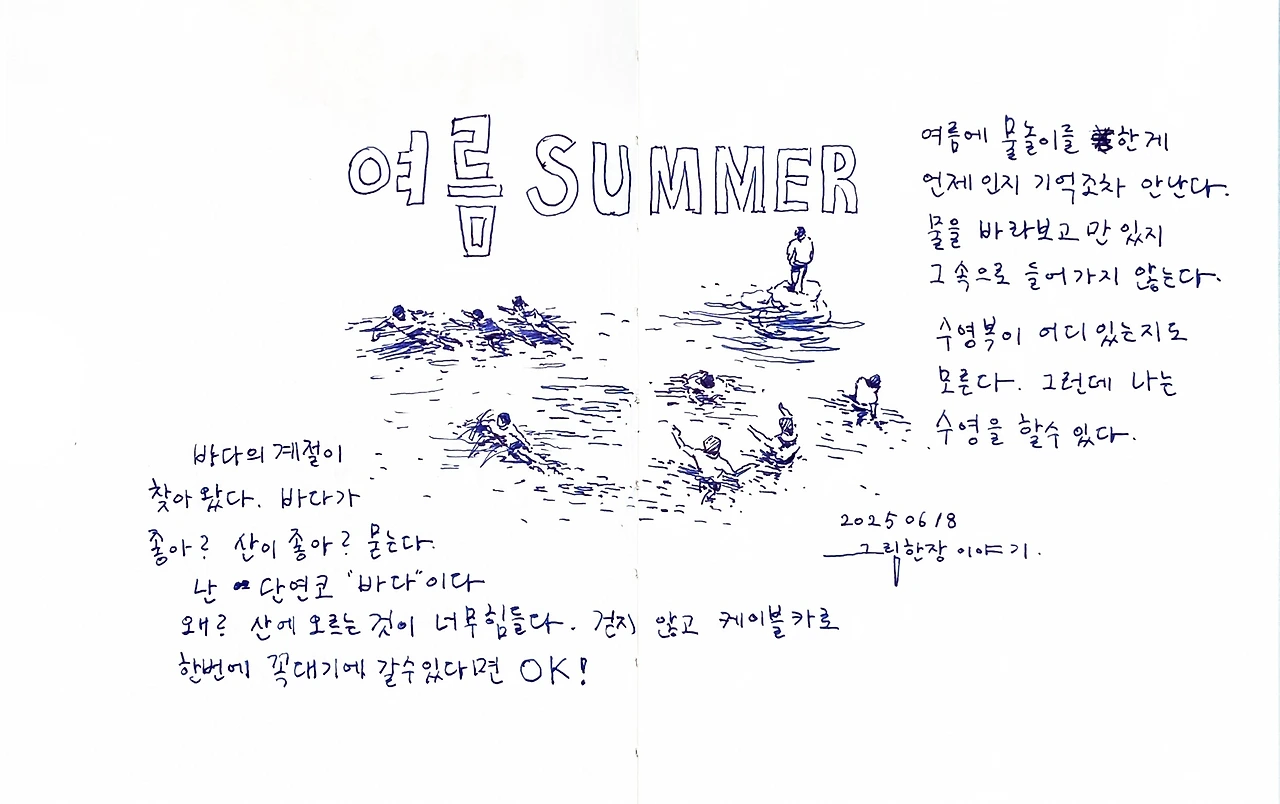 여름 SUMMER
바다의 계절이
찾아 왔다. 바다가
좋아? 산이 좋아? 묻는다.
난 단연코 "바다"이다
왜? 산에 오르는 것이 너무 힘들다. 걷지 않고 케이블카로
한번에 꼭대기에 갈수있다면 OK!
여름에 물놀이를 한게
언제인지 기억조차 안난다.
물을 바라보고만 있지
그 속으로 들어가지 않는다.
수영복이 어디있는지도
모른다. 그런데 나는
수영을 할수 있다.
2025 06 18
그림한장 이야기.